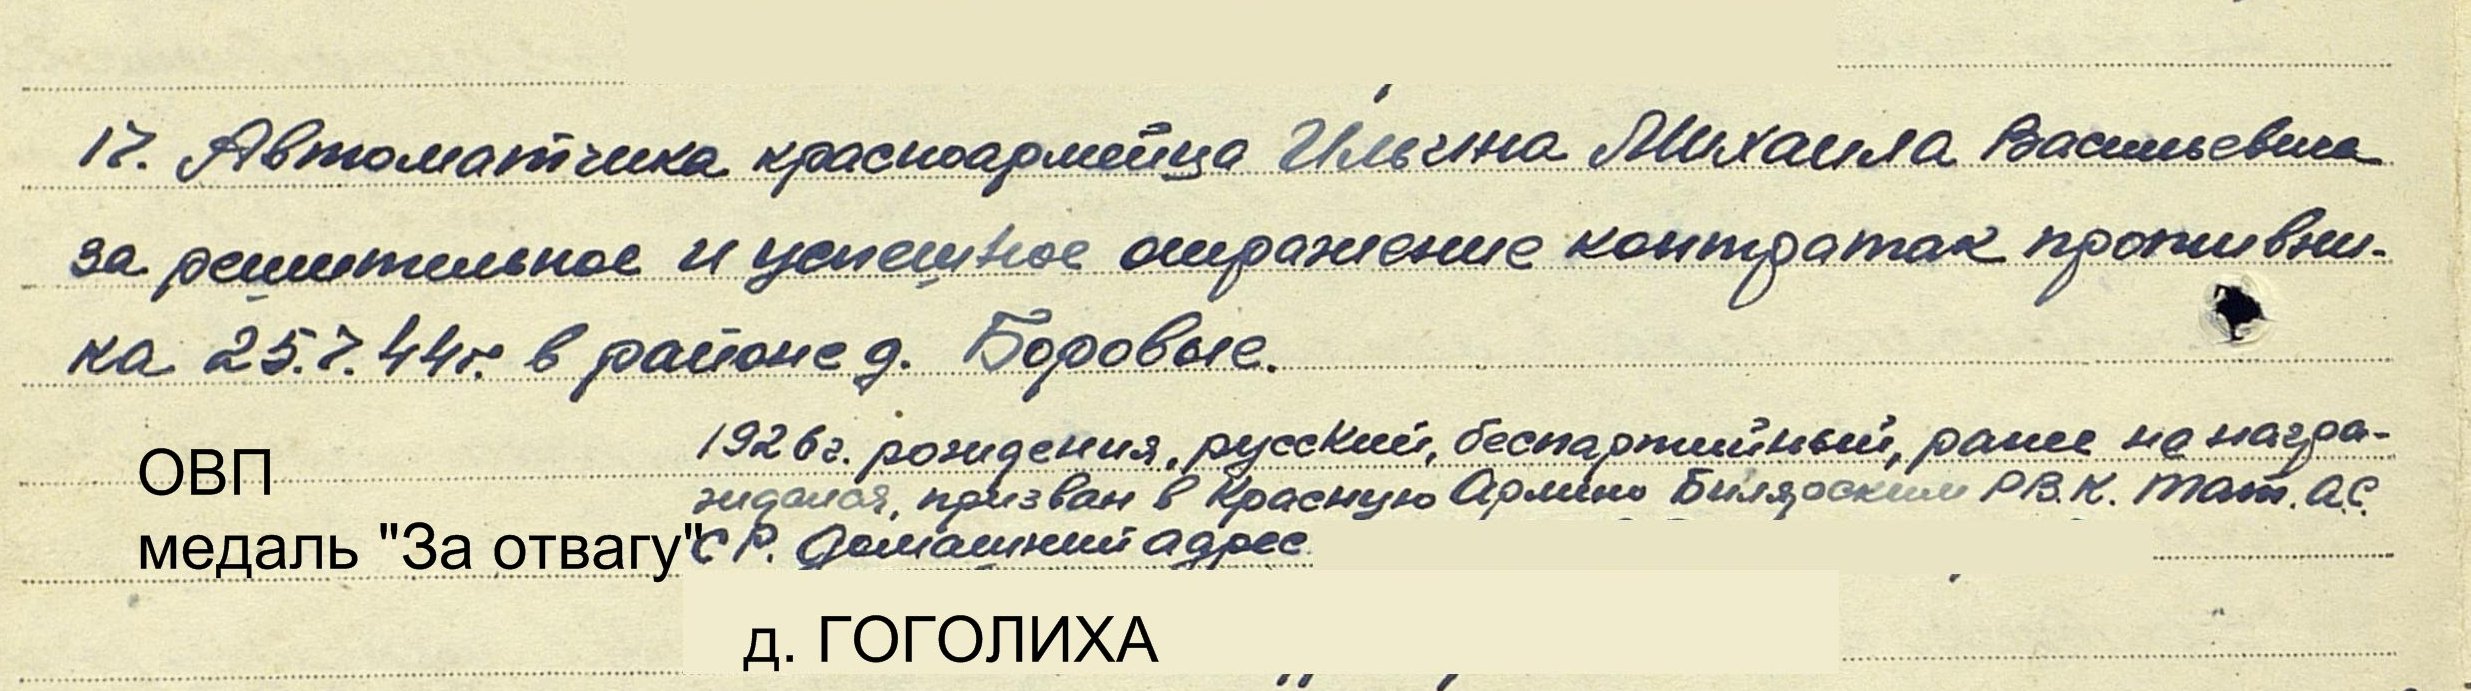 17. Автоматчика красноармейца Ильина Михаила Васильевича
за решительное и успешное отражение контратак противни-
ка 25.7.44г. в районе д. Боровые.
1926г. рождения, русский, беспартийный, ранее не награ-
ждался, призван в Красную Армию Билярским Р.В.К. Тат. А.С.
С Р. Домашний адрес
ОВП
медаль "За отвагу"
д. ГОГОЛИХА